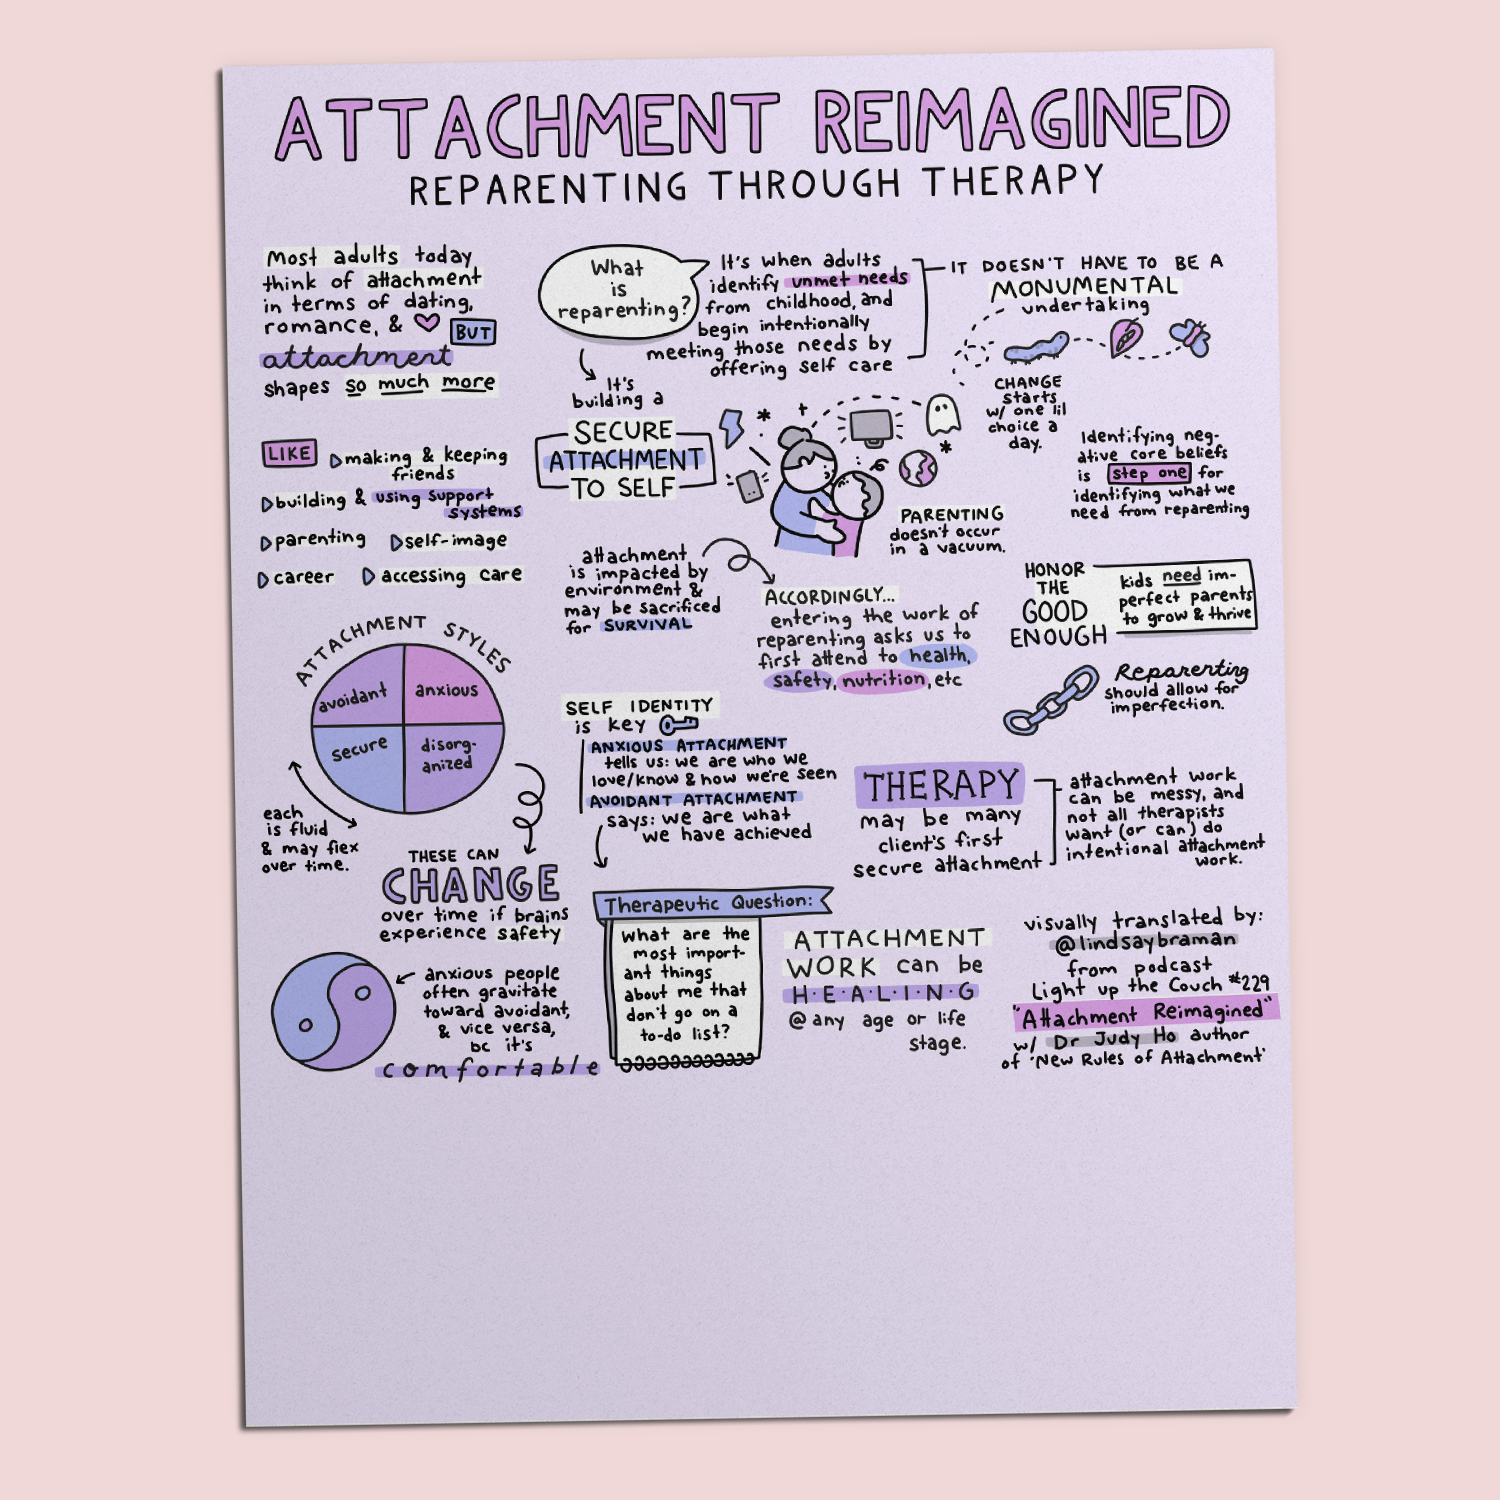 ATTACHMENT REIMAGINED
REPARENTING THROUGH THERAPY
Most adults today
think of attachment
in terms of dating,
romance, &
BUT
attachment
shapes so much more
LIKE
making & keeping
friends
building & using support
systems
parenting
self-image
career
accessing care
ATTACHMENT STYLES
avoidant
anxious
secure
disorg-
anized
each
is fluid
& may flex
over time.
THESE CAN
CHANGE
over time if brains
experience safety
anxious people
often gravitate
toward avoidant,
& vice versa,
bc it's
comfortable
What
is
reparenting?
It's when adults
identify unmet needs
from childhood, and
begin intentionally
meeting those needs by
offering self care
It's
building a
SECURE
ATTACHMENT
TO SELF
attachment
is impacted by
environment &
may be sacrificed
for SURVIVAL
ACCORDINGLY...
entering the work of
reparenting asks us to
first attend to health,
safety, nutrition, etc
SELF IDENTITY
is key
ANXIOUS ATTACHMENT
tells us: we are who we
love/know & how we're seen
AVOIDANT ATTACHMENT
says: we are what
we have achieved
Therapeutic Question:
What are the
most import-
ant things
about me that
don't go on a
to-do list?
IT DOESN'T HAVE TO BE A
MONUMENTAL
undertaking
CHANGE
starts
w/ one lil
choice a
day.
PARENTING
doesn't occur
in a vacuum.
Identifying neg-
ative core beliefs
is step one for
identifying what we
need from reparenting
HONOR
THE
GOOD
ENOUGH
kids need im-
perfect parents
to grow & thrive
Reparenting
should allow for
imperfection.
THERAPY
may be many
client's first
secure attachment
attachment work
can be messy, and
not all therapists
want (or can) do
intentional attachment
work.
ATTACHMENT
WORK can be
H·E·A·L·I·N·G
@ any age or life
stage.
visually translated by:
@lindsaybraman
from podcast
Light up the Couch #229
"Attachment Reimagined"
w/ Dr Judy Ho author
of 'New Rules of Attachment'